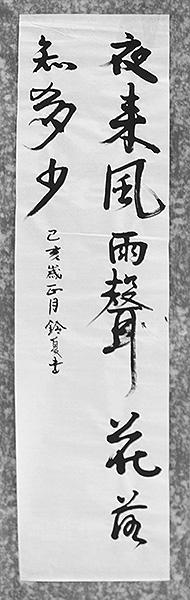 夜来風雨聲花落
知多少
己亥歳正月鈴夏書